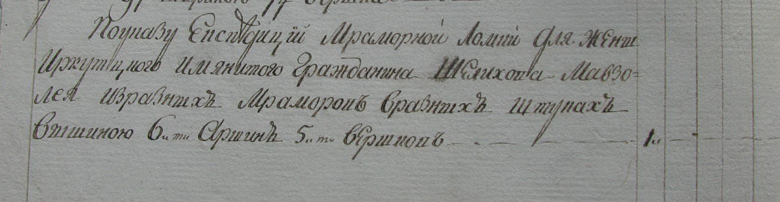 Поуказу Експедицiй Мраморной Ломки для жены
Иркутцкого Имянитого Гражданина Шелихова Мавзо-
лея изразныхъ Мраморовъ вразныхъ штукахъ
вышиною 6„ти Аршинъ 5„ти вершковъ 1„